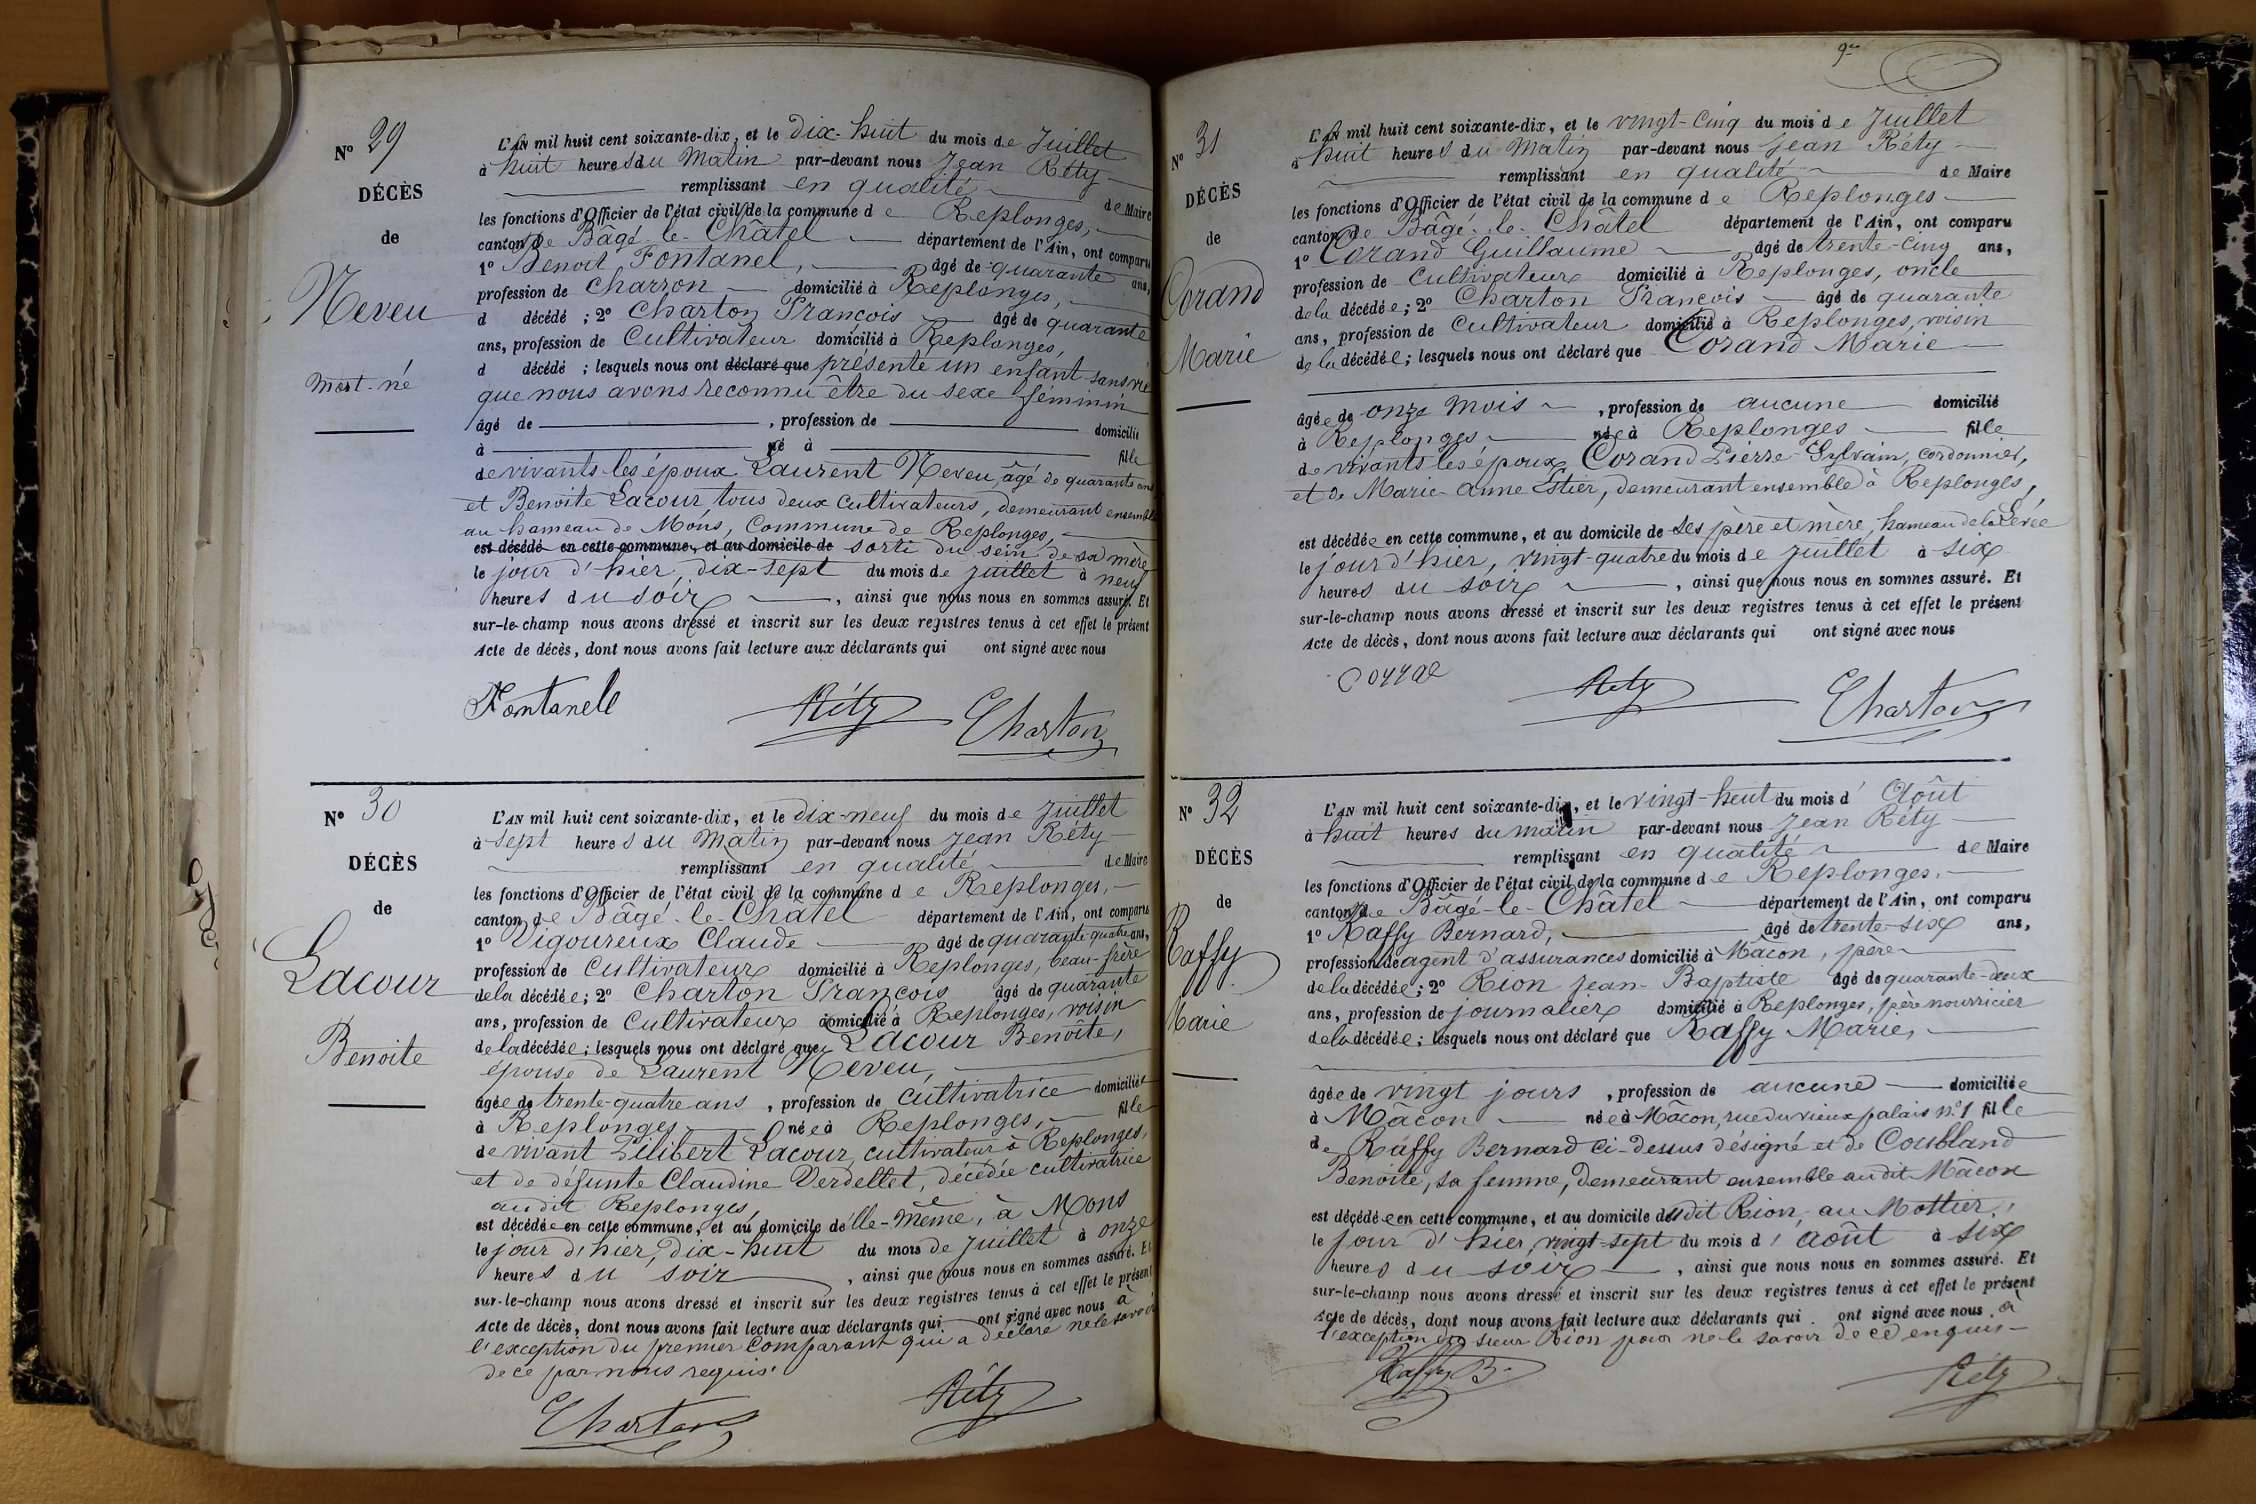 N° 29
DÉCÈS
de
Neveu
Mort-né
L'AN mil huit cent soixante-dix, et le dix-huit du mois de Juillet
à huit heures du Matin par-devant nous Jean Réty
remplissant en qualité de Maire
les fonctions d'Officier de l'état civil de la commune de Replonges,
canton de Bâgé-le-Châtel département de l'Ain, ont comparu
1° Benoit Fontanel, âgé de quarante ans,
profession de charron domicilié à Replonges,
d décédé ; 2° Charton François âgé de quarante
ans, profession de Cultivateur domicilié à Replonges,
d décédé ; lesquels nous ont déclaré que présenté un enfant sans vie
que nous avons reconnu être du sexe féminin
âgé de , profession de domicilié
à né à fille
de vivants les époux Laurent Neveu, âgé de quarante ans
et Benoite Lacour, tous deux cultivateurs, demeurant ensemble
au hameau de Mons, Commune de Replonges,
est décédé en cette commune, et au domicile de sorti du sein de sa mère
le jour d'hier, dix-sept du mois de juillet à neuf
heures du soir , ainsi que nous nous en sommes assuré. Et
sur-le-champ nous avons dressé et inscrit sur les deux registres tenus à cet effet le présent
Acte de décès, dont nous avons fait lecture aux déclarants qui ont signé avec nous
Fontanelle Réty Charton
N° 30
DÉCÈS
de
Lacour
Benoite
L'AN mil huit cent soixante-dix, et le dix-neuf du mois de Juillet
à sept heures du Matin par-devant nous Jean Réty
remplissant en qualité de Maire
les fonctions d'Officier de l'état civil de la commune de Replonges,
canton de Bâgé-le-Châtel département de l'Ain, ont comparu
1° Vigoureux Claude âgé de quarante-quatre ans,
profession de cultivateur domicilié à Replonges, beau-frère
de la décédée ; 2° Charton François âgé de quarante
ans, profession de Cultivateur domicilié à Replonges, voisin
de la décédée ; lesquels nous ont déclaré que Lacour Benoîte,
épouse de Laurent Neveu,
âgée de trente-quatre ans , profession de cultivatrice domiciliée
à Replonges née à Replonges, fille
de vivant Pilibert Lacour, cultivateur à Replonges,
et de défunte Claudine Verdellet, décédée cultivatrice
audit Replonges,
est décédée en cette commune, et au domicile d'elle-même, à Mons
le jour d'hier, dix-huit du mois de Juillet à onze
heures du soir , ainsi que nous nous en sommes assuré. Et
sur-le-champ nous avons dressé et inscrit sur les deux registres tenus à cet effet le présent
Acte de décès, dont nous avons fait lecture aux déclarants qui ont signé avec nous à
l'exception du premier Comparant qui a déclaré ne le savoir
de ce par nous requis.
Charton Réty
N° 31
DÉCÈS
de
Corand
Marie
L'AN mil huit cent soixante-dix, et le vingt-cinq du mois de Juillet
à huit heures du Matin par-devant nous Jean Réty
remplissant en qualité de Maire
les fonctions d'Officier de l'état civil de la commune de Replonges
canton de Bâgé-le-Châtel département de l'Ain, ont comparu
1° Corand Guillaume âgé de trente-cinq ans,
profession de Cultivateur domicilié à Replonges, oncle
de la décédée ; 2° Charton François âgé de quarante
ans, profession de Cultivateur domicilié à Replonges, voisin
de la décédée ; lesquels nous ont déclaré que Corand Marie
âgée de onze Mois , profession de aucune domicilié
à Replonges née à Replonges fille
de vivants les époux Corand Pierre-Sylvain, cordonnier,
et de Marie-Anne Estier, demeurant ensemble à Replonges,
est décédée en cette commune, et au domicile de ses père et mère, hameau de la Levée
le jour d'hier, vingt-quatre du mois de juillet à six
heures du soir , ainsi que nous nous en sommes assuré. Et
sur-le-champ nous avons dressé et inscrit sur les deux registres tenus à cet effet le présent
Acte de décès, dont nous avons fait lecture aux déclarants qui ont signé avec nous
Réty Charton
N° 32
DÉCÈS
de
Raffy
Marie
L'AN mil huit cent soixante-dix, et le vingt-huit du mois d'Août
à huit heures du matin par-devant nous Jean Réty
remplissant en qualité de Maire
les fonctions d'Officier de l'état civil de la commune de Replonges,
canton de Bâgé-le-Châtel département de l'Ain, ont comparu
1° Raffy Bernard, âgé de trente-six ans,
profession de agent d'assurances domicilié à Mâcon, père
de la décédée ; 2° Rion Jean-Baptiste âgé de quarante-deux
ans, profession de journalier domicilié à Replonges, père nourricier
de la décédée ; lesquels nous ont déclaré que Raffy Marie,
âgée de vingt jours , profession de aucune domiciliée
à Mâcon née à Mâcon, rue du vieux palais n°1 fille
de Raffy Bernard ci-dessus désigné et de Coubland
Benoite, sa femme, demeurant ensemble audit Mâcon
est décédée en cette commune, et au domicile dudit Rion, au Mottier,
le jour d'hier, vingt-sept du mois d'août à six
heures du soir , ainsi que nous nous en sommes assuré. Et
sur-le-champ nous avons dressé et inscrit sur les deux registres tenus à cet effet le présent
Acte de décès, dont nous avons fait lecture aux déclarants qui ont signé avec nous à
l'exception du sieur Rion pour ne le savoir de ce enquis
Raffy B. Réty